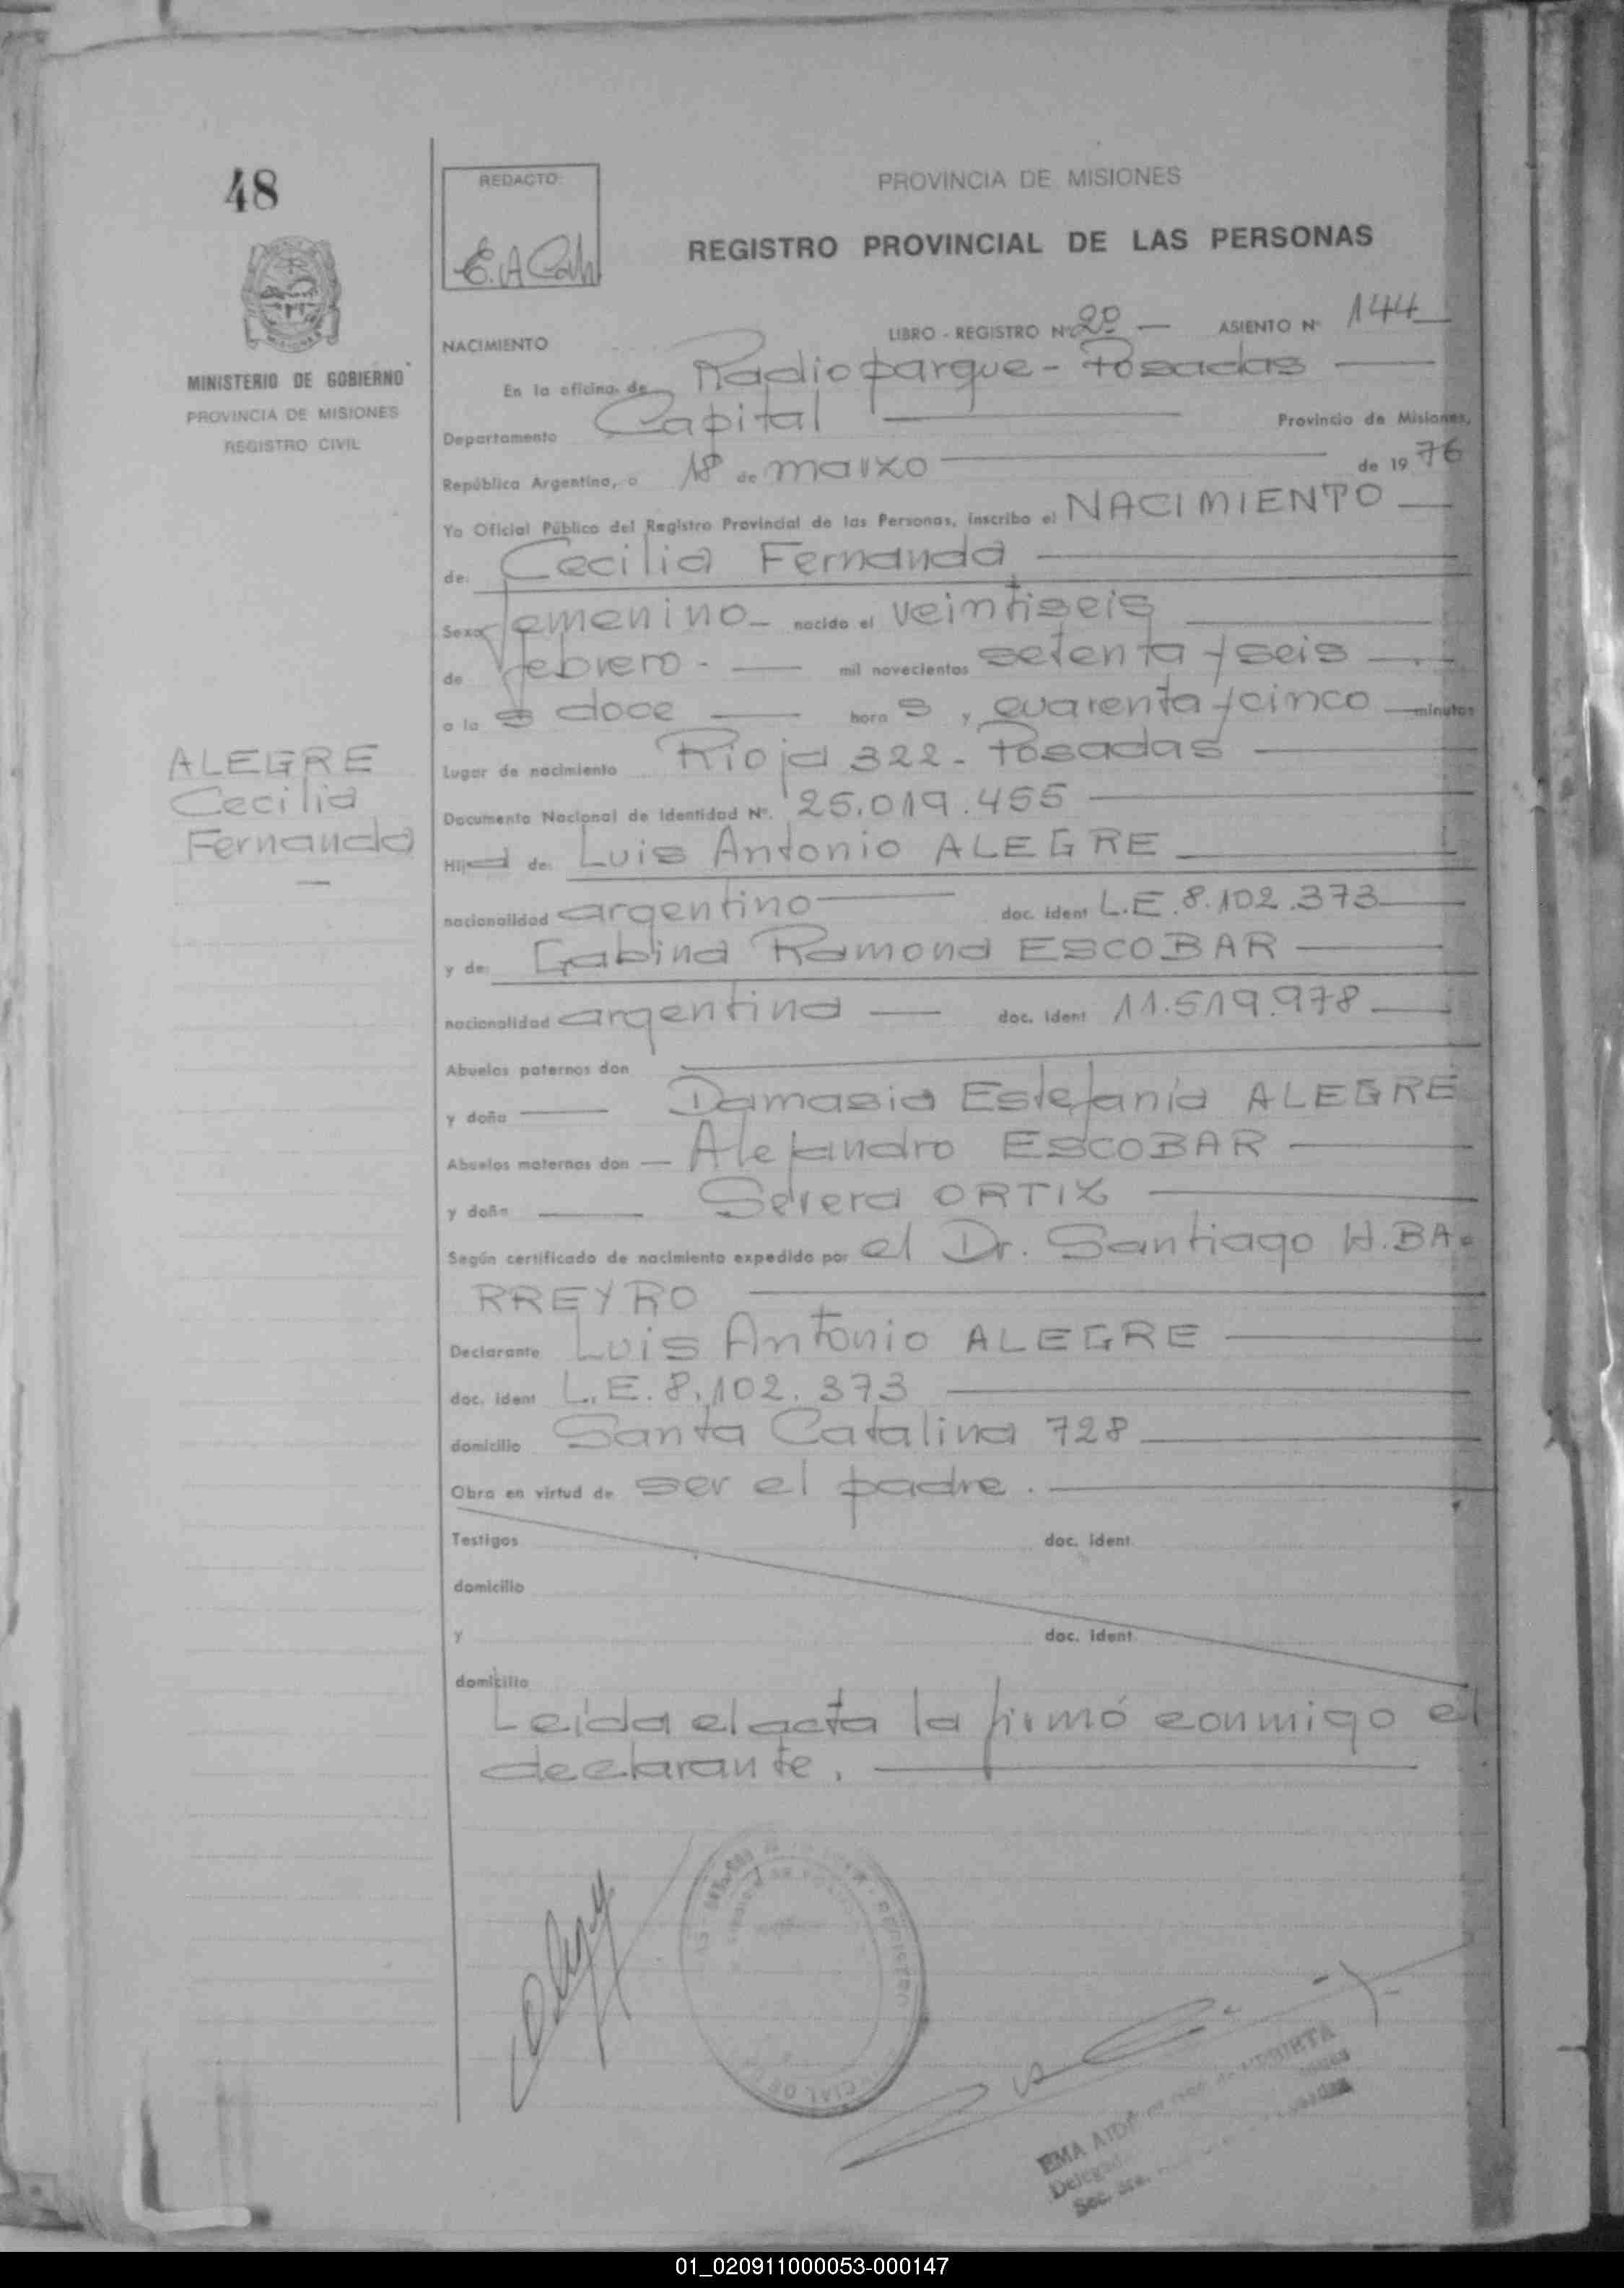 48
REDACTO:
E.A
PROVINCIA DE MISIONES
REGISTRO PROVINCIAL DE LAS PERSONAS
MINISTERIO DE GOBIERNO
PROVINCIA DE MISIONES
REGISTRO CIVIL
NACIMIENTO
LIBRO - REGISTRO Nº 2º — ASIENTO Nº 144
En la oficina de Radioparque - Posadas
Departamento Capital Provincia de Misiones,
República Argentina, a 18 de marzo de 1976
Yo Oficial Público del Registro Provincial de las Personas, inscribo el NACIMIENTO
de: Cecilia Fernanda
Sexo femenino — nacido el veintiseis
de febrero - mil novecientos setenta y seis
a las doce horas y cuarenta y cinco minutos
Lugar de nacimiento Rioja 322 - Posadas
Documento Nacional de Identidad Nº. 25.019.455
ALEGRE
Cecilia
Fernanda
Hija de: Luis Antonio ALEGRE
nacionalidad argentino doc. ident L.E. 8.102.373
y de: Gabina Ramona ESCOBAR
nacionalidad argentina doc. ident 11.519.978
Abuelos paternos don
y doña Damasia Estefanía ALEGRE
Abuelos maternos don Alejandro ESCOBAR
y doña Severa ORTIZ
Según certificado de nacimiento expedido por el Dr. Santiago H. BA-
RREYRO
Declarante Luis Antonio ALEGRE
doc. ident L.E. 8.102.373
domicilio Santa Catalina 728
Obra en virtud de ser el padre.
Testigos doc. ident.
domicilio
y doc. ident.
domicilio
Leída el acta la firmó conmigo el
declarante.
EMA
Sec. 3ra.
01_020911000053-000147